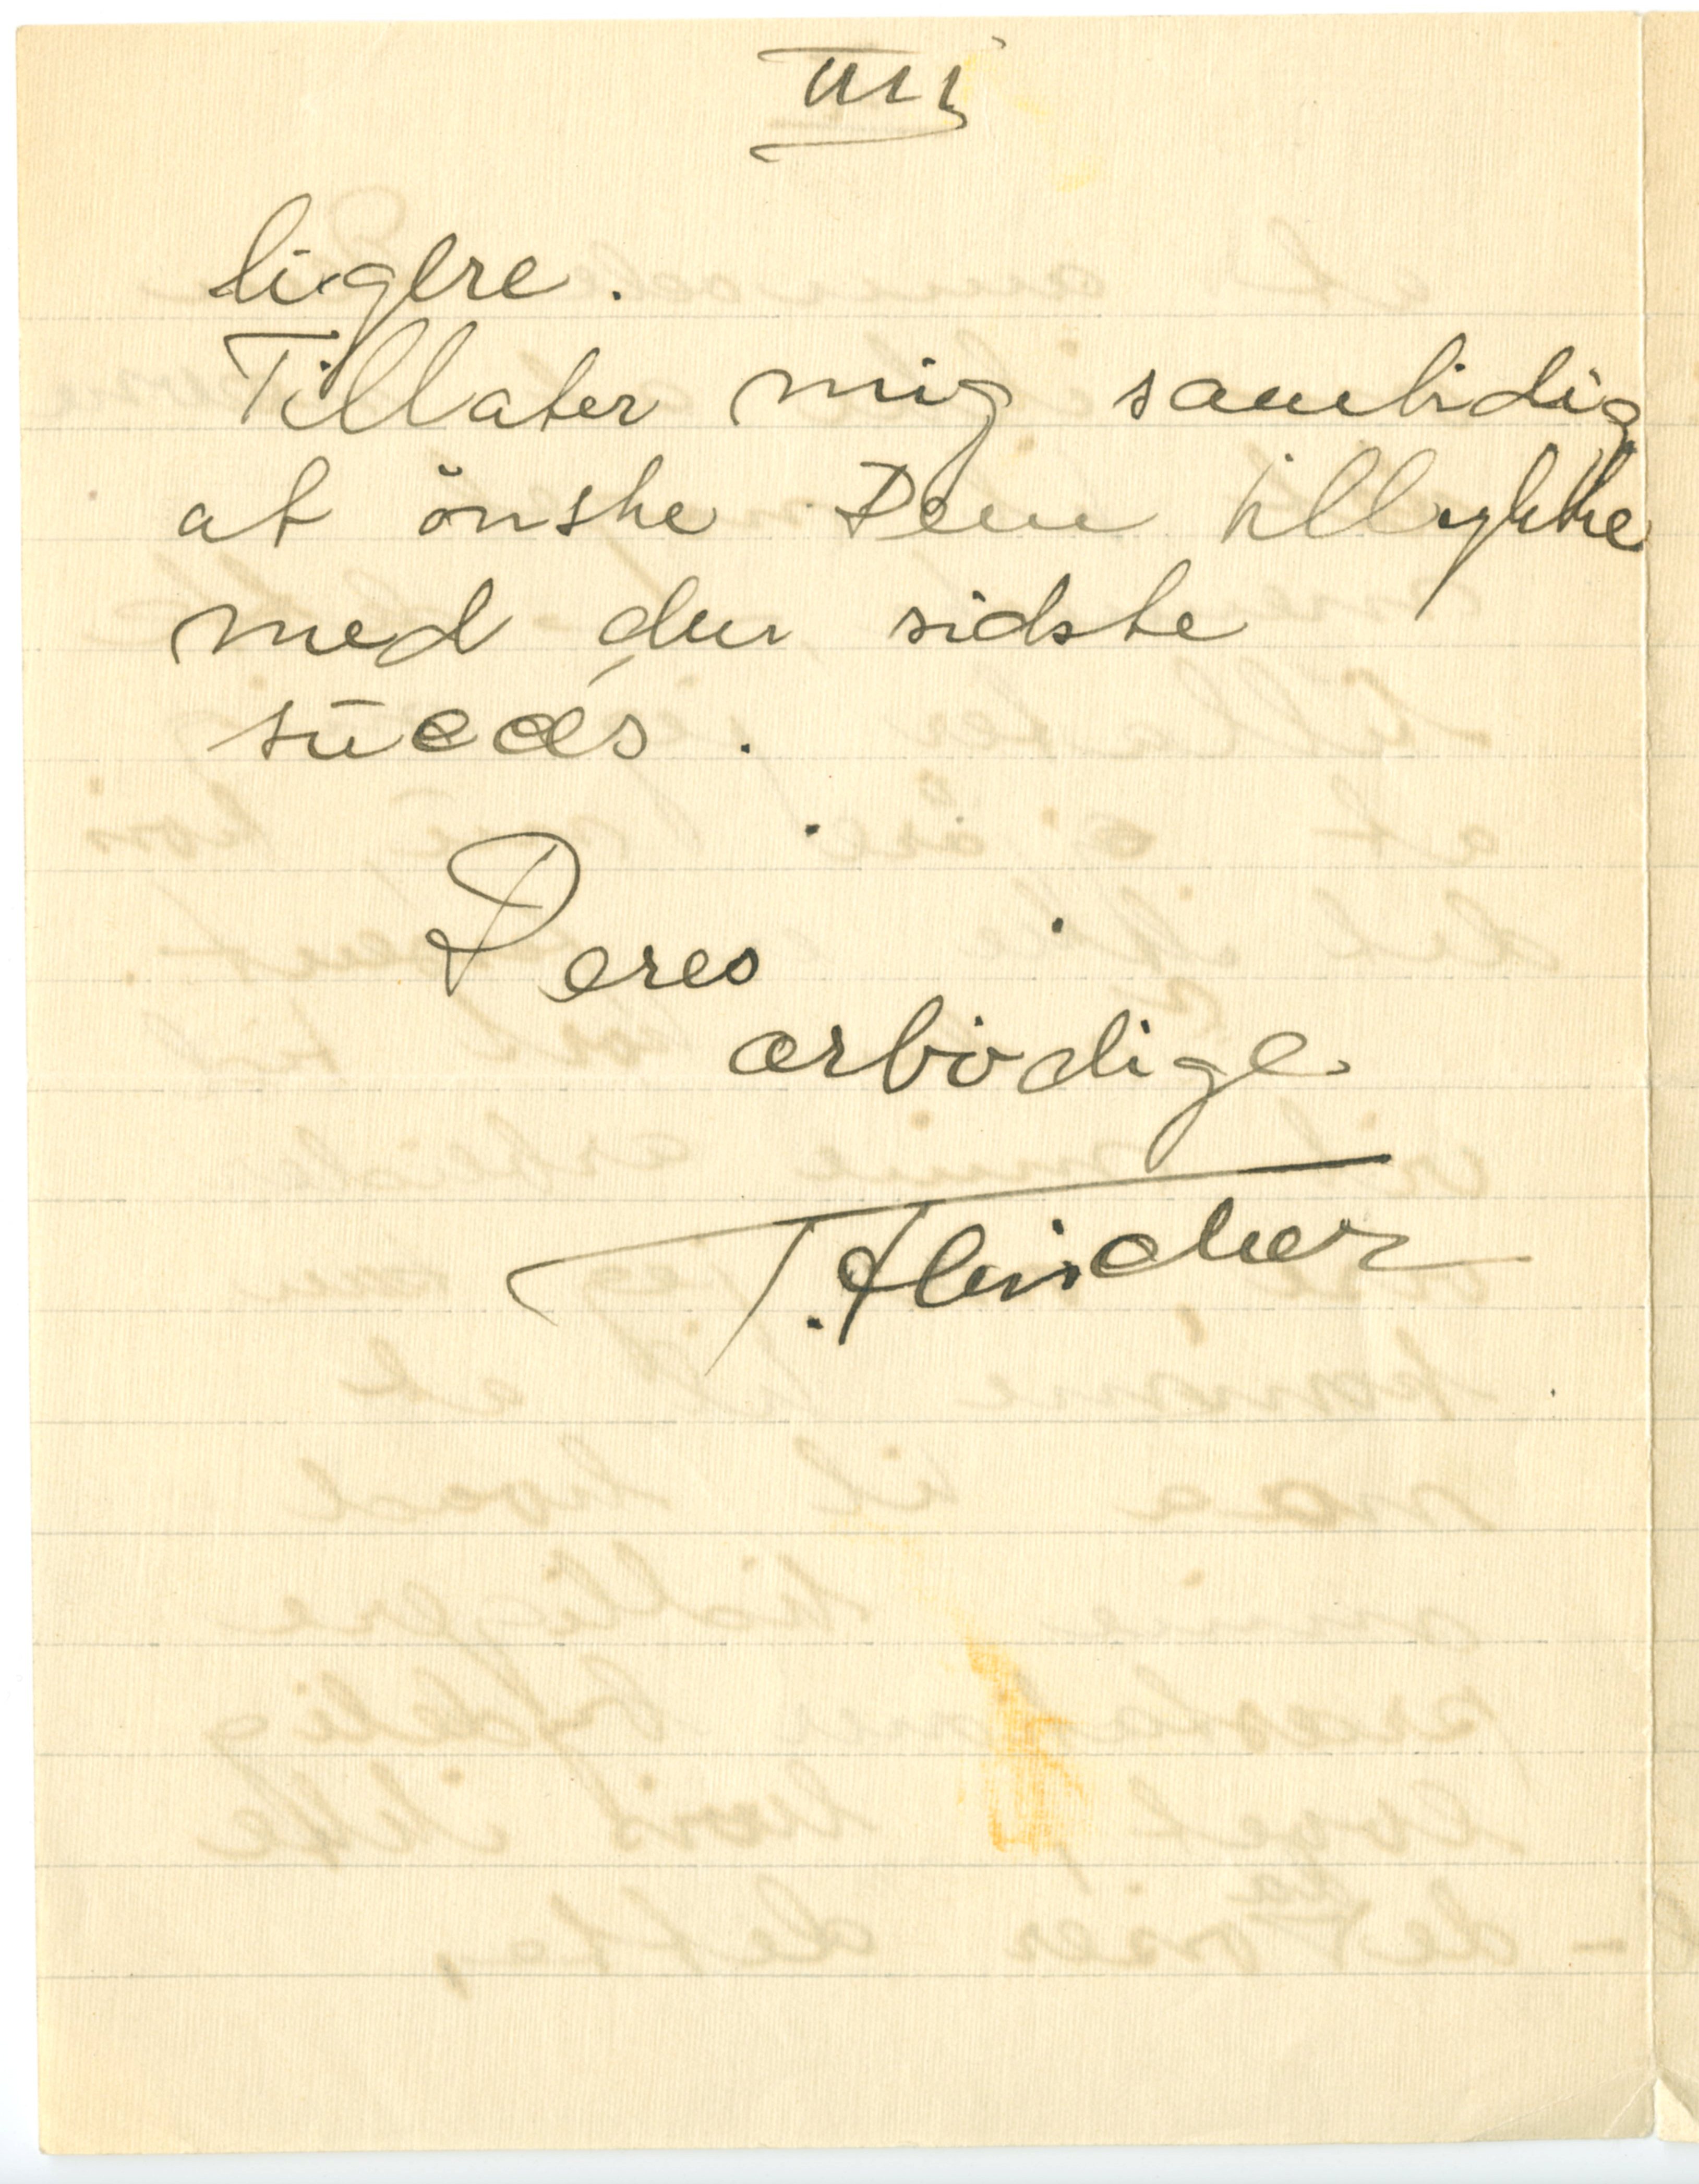 III
ligere.
Tillater mig samtidig
at önske Dem tillykke
med den sidste
sūccés.
Deres
ærbödige
T. Fleischer